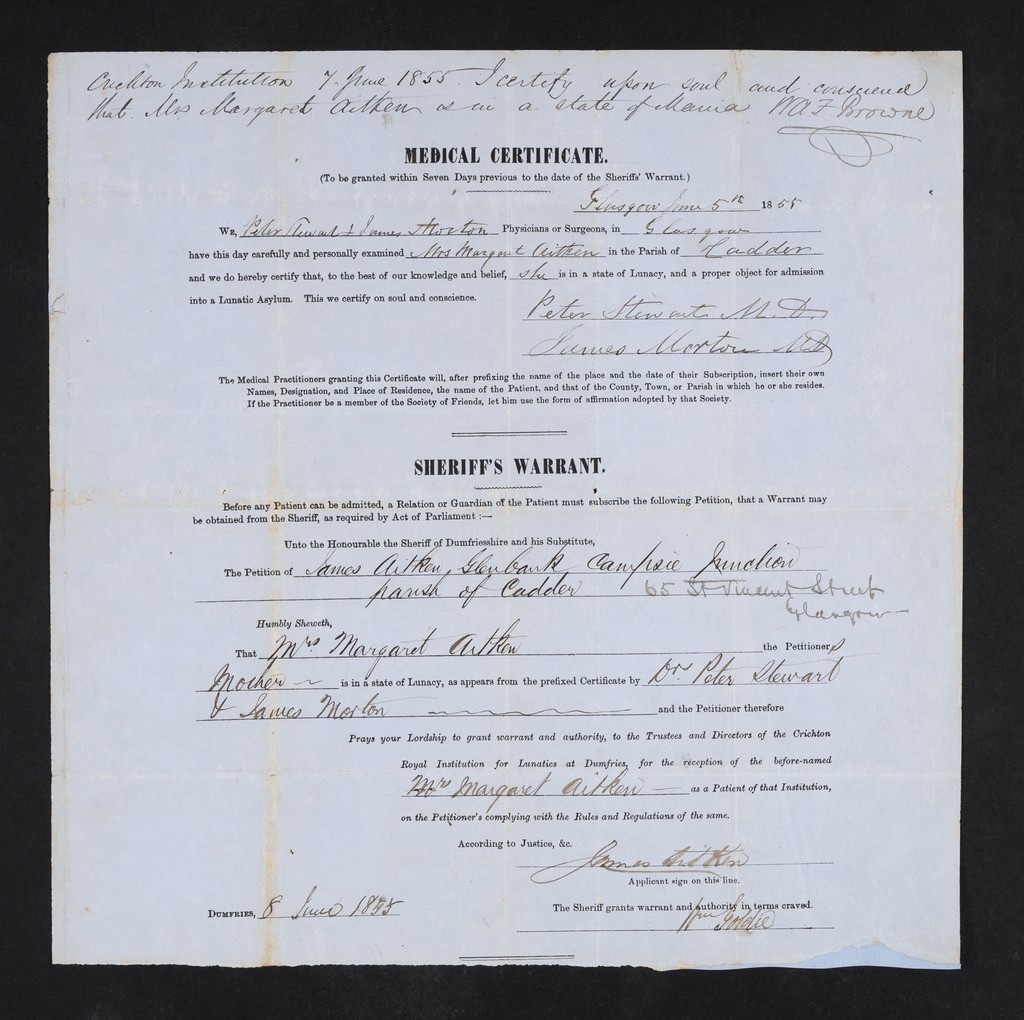 Crichton Institution 7 June 1855. I certify upon soul and conscience
that Mrs Margaret Aitken is in a state of Mania WAF Browne
MEDICAL CERTIFICATE.
(To be granted within Seven Days previous to the date of the Sheriffs' Warrant.)
Glasgow June 5th 1855
WE, Peter Stewart & James Morton Physicians or Surgeons, in Glasgow
have this day carefully and personally examined Mrs Margaret Aitken in the Parish of Cadder
and we do hereby certify that, to the best of our knowledge and belief, she is in a state of Lunacy, and a proper object for admission
into a Lunatic Asylum. This we certify on soul and conscience.
Peter Stewart M.D.
James Morton MD
The Medical Practitioners granting this Certificate will, after prefixing the name of the place and the date of their Subscription, insert their own
Names, Designation, and Place of Residence, the name of the Patient, and that of the County, Town, or Parish in which he or she resides.
If the Practitioner be a member of the Society of Friends, let him use the form of affirmation adopted by that Society.
SHERIFF'S WARRANT.
Before any Patient can be admitted, a Relation or Guardian of the Patient must subscribe the following Petition, that a Warrant may
be obtained from the Sheriff, as required by Act of Parliament :—
Unto the Honourable the Sheriff of Dumfriesshire and his Substitute,
The Petition of James Aitken, Glenbank, Campsie Junction
parish of Cadder 65 St Vincent Street
Glasgow
Humbly Sheweth,
That Mrs Margaret Aitken the Petitioners
Mother is in a state of Lunacy, as appears from the prefixed Certificate by Drs Peter Stewart
& James Morton and the Petitioner therefore
Prays your Lordship to grant warrant and authority, to the Trustees and Directors of the Crichton
Royal Institution for Lunatics at Dumfries, for the reception of the before-named
Mrs Margaret Aitken — as a Patient of that Institution,
on the Petitioner's complying with the Rules and Regulations of the same.
According to Justice, &c.
James Aitken
Applicant sign on this line.
DUMFRIES, 8 June 1855 The Sheriff grants warrant and authority in terms craved.